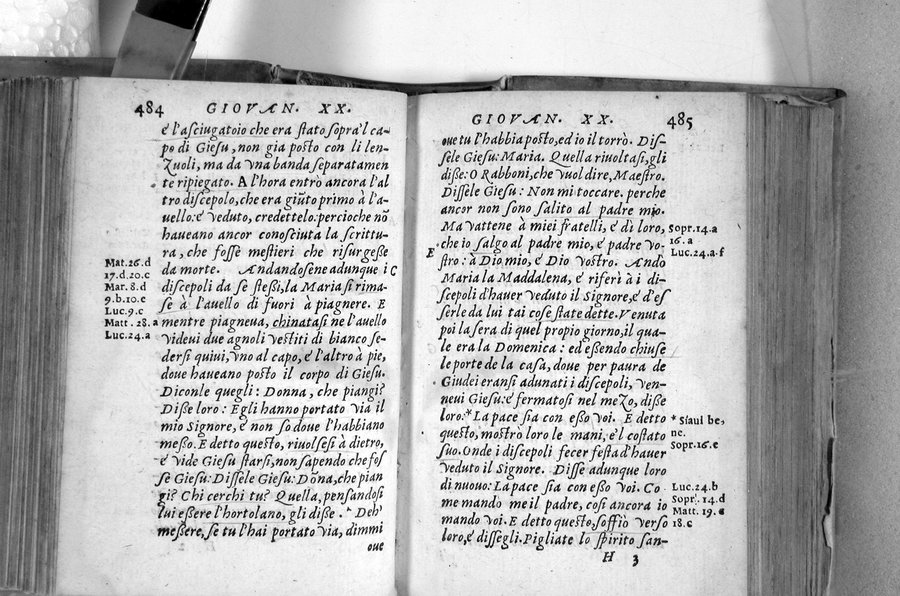 484
GIOVAN. XX.
é l'asciugatoio che era stato sopra'l ca-
po di Giesu, non gia posto con li len-
Zuoli, ma da vna banda separatamen
te ripiegato. A l'hora entrò ancora l'al
tro discepolo, che era giūto primo à l'a-
uello: é veduto, credettelo: percioche nō
haueano ancor conosciuta la scrittu-
ra, che fosse mestieri che risurgesse
da morte. Andandosene adunque i
C
discepoli da se stessi, la Maria si rima-
se à l'auello di fuori à piagnere. E
mentre piagneua, chinatasi ne l'auello
videui due agnoli vestiti di bianco se-
dersi quiui, vno al capo, é l'altro à piè,
doue haueano posto il corpo di Giesu.
Diconle quegli: Donna, che piangi?
Disse loro: Egli hanno portato via il
mio Signore, é non so doue l'habbiano
messo. E detto questo, riuolsesi à dietro,
é vide Giesu starsi, non sapendo che fos
se Giesu: Dissele Giesu: Dōna, che pian
gi? Chi cerchi tu? Quella, pensandosi
lui essere l'hortolano, gli disse. * Deh'
messere, se tu l'hai portato via, dimmi
oue
Mat.26.d
17.d.20.c
Mar.8.d
9.b.10.c
Luc.9.c
Matt.28.a
Luc.24.a
GIOVAN. XX.
485
oue tu l'habbia posto, ed io il torrò. Dis-
sele Giesu: Maria. Quella riuoltasi, gli
disse: O Rabboni, che vuol dire, Maestro.
Dissele Giesu: Non mi toccare. perche
ancor non sono salito al padre mio.
Ma vattene à miei fratelli, é dì loro,
che io salgo al padre mio, é padre vo-
E
stro: à Dio mio, é Dio vostro. Andò
Maria la Maddalena, é riferì à i di-
scepoli d'hauer veduto il Signore, é d'es
serle da lui tai cose state dette. Venuta
poi la sera di quel propio giorno, il qua-
le era la Domenica: ed essendo chiuse
le porte de la casa, doue per paura de
Giudei eransi adunati i discepoli, ven-
neui Giesu: é fermatosi nel meZo, disse
loro:* La pace sia con esso voi. E detto
questo, mostrò loro le mani, é'l costato
suo. Onde i discepoli fecer festa d'hauer
veduto il Signore. Disse adunque loro
di nuouo: La pace sia con esso voi. Co
me mando me il padre, cosi ancora io
mando voi. E detto questo, soffiò verso
loro, é dissegli. Pigliate lo spirito san-
H 3
Sopr.14.a
16.a
Luc.24.a.f
* Siaui be,
ne.
Sopr.16.e
Luc.24.b
Sopr.14.d
Matt.19.
18.c